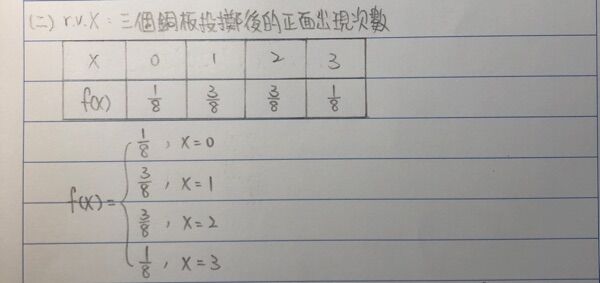 (二) r.v.X：三個銅板投擲後的正面出現次數
X 0 1 2 3
f(x) 1/8 3/8 3/8 1/8
f(x)= { 1/8 , X=0
3/8 , X=1
3/8 , X=2
1/8 , X=3